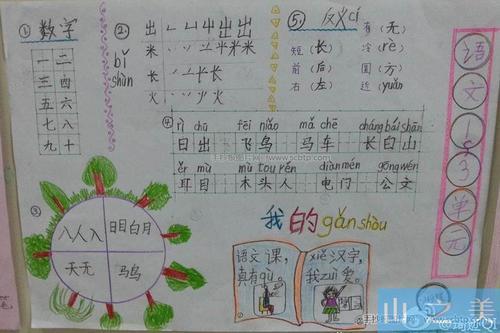 ① 数字
一 二
三 四
五 六
七 八
九 十
② 出
bǐ shùn
米
长
火
⑤ 反义cí
有（无）
短（长） 冷（rè）
前（后） 圆（方）
右（左） 近（yuǎn）
④ rì chū fēi niǎo mǎ chē cháng bái shān
日出 飞鸟 马车 长白山
ěr mù mù tou rén diàn mén gōng wén
耳目 木头人 电门 公文
③
八人入 日目白月
天无 马鸟
我的gǎn shòu
语文课，
真有qù。
xiě汉字，
我zuì爱。
语文1~3单元